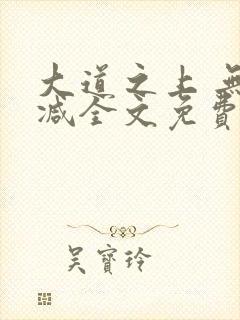 大道之上 無
減全文免費
吳寶玲